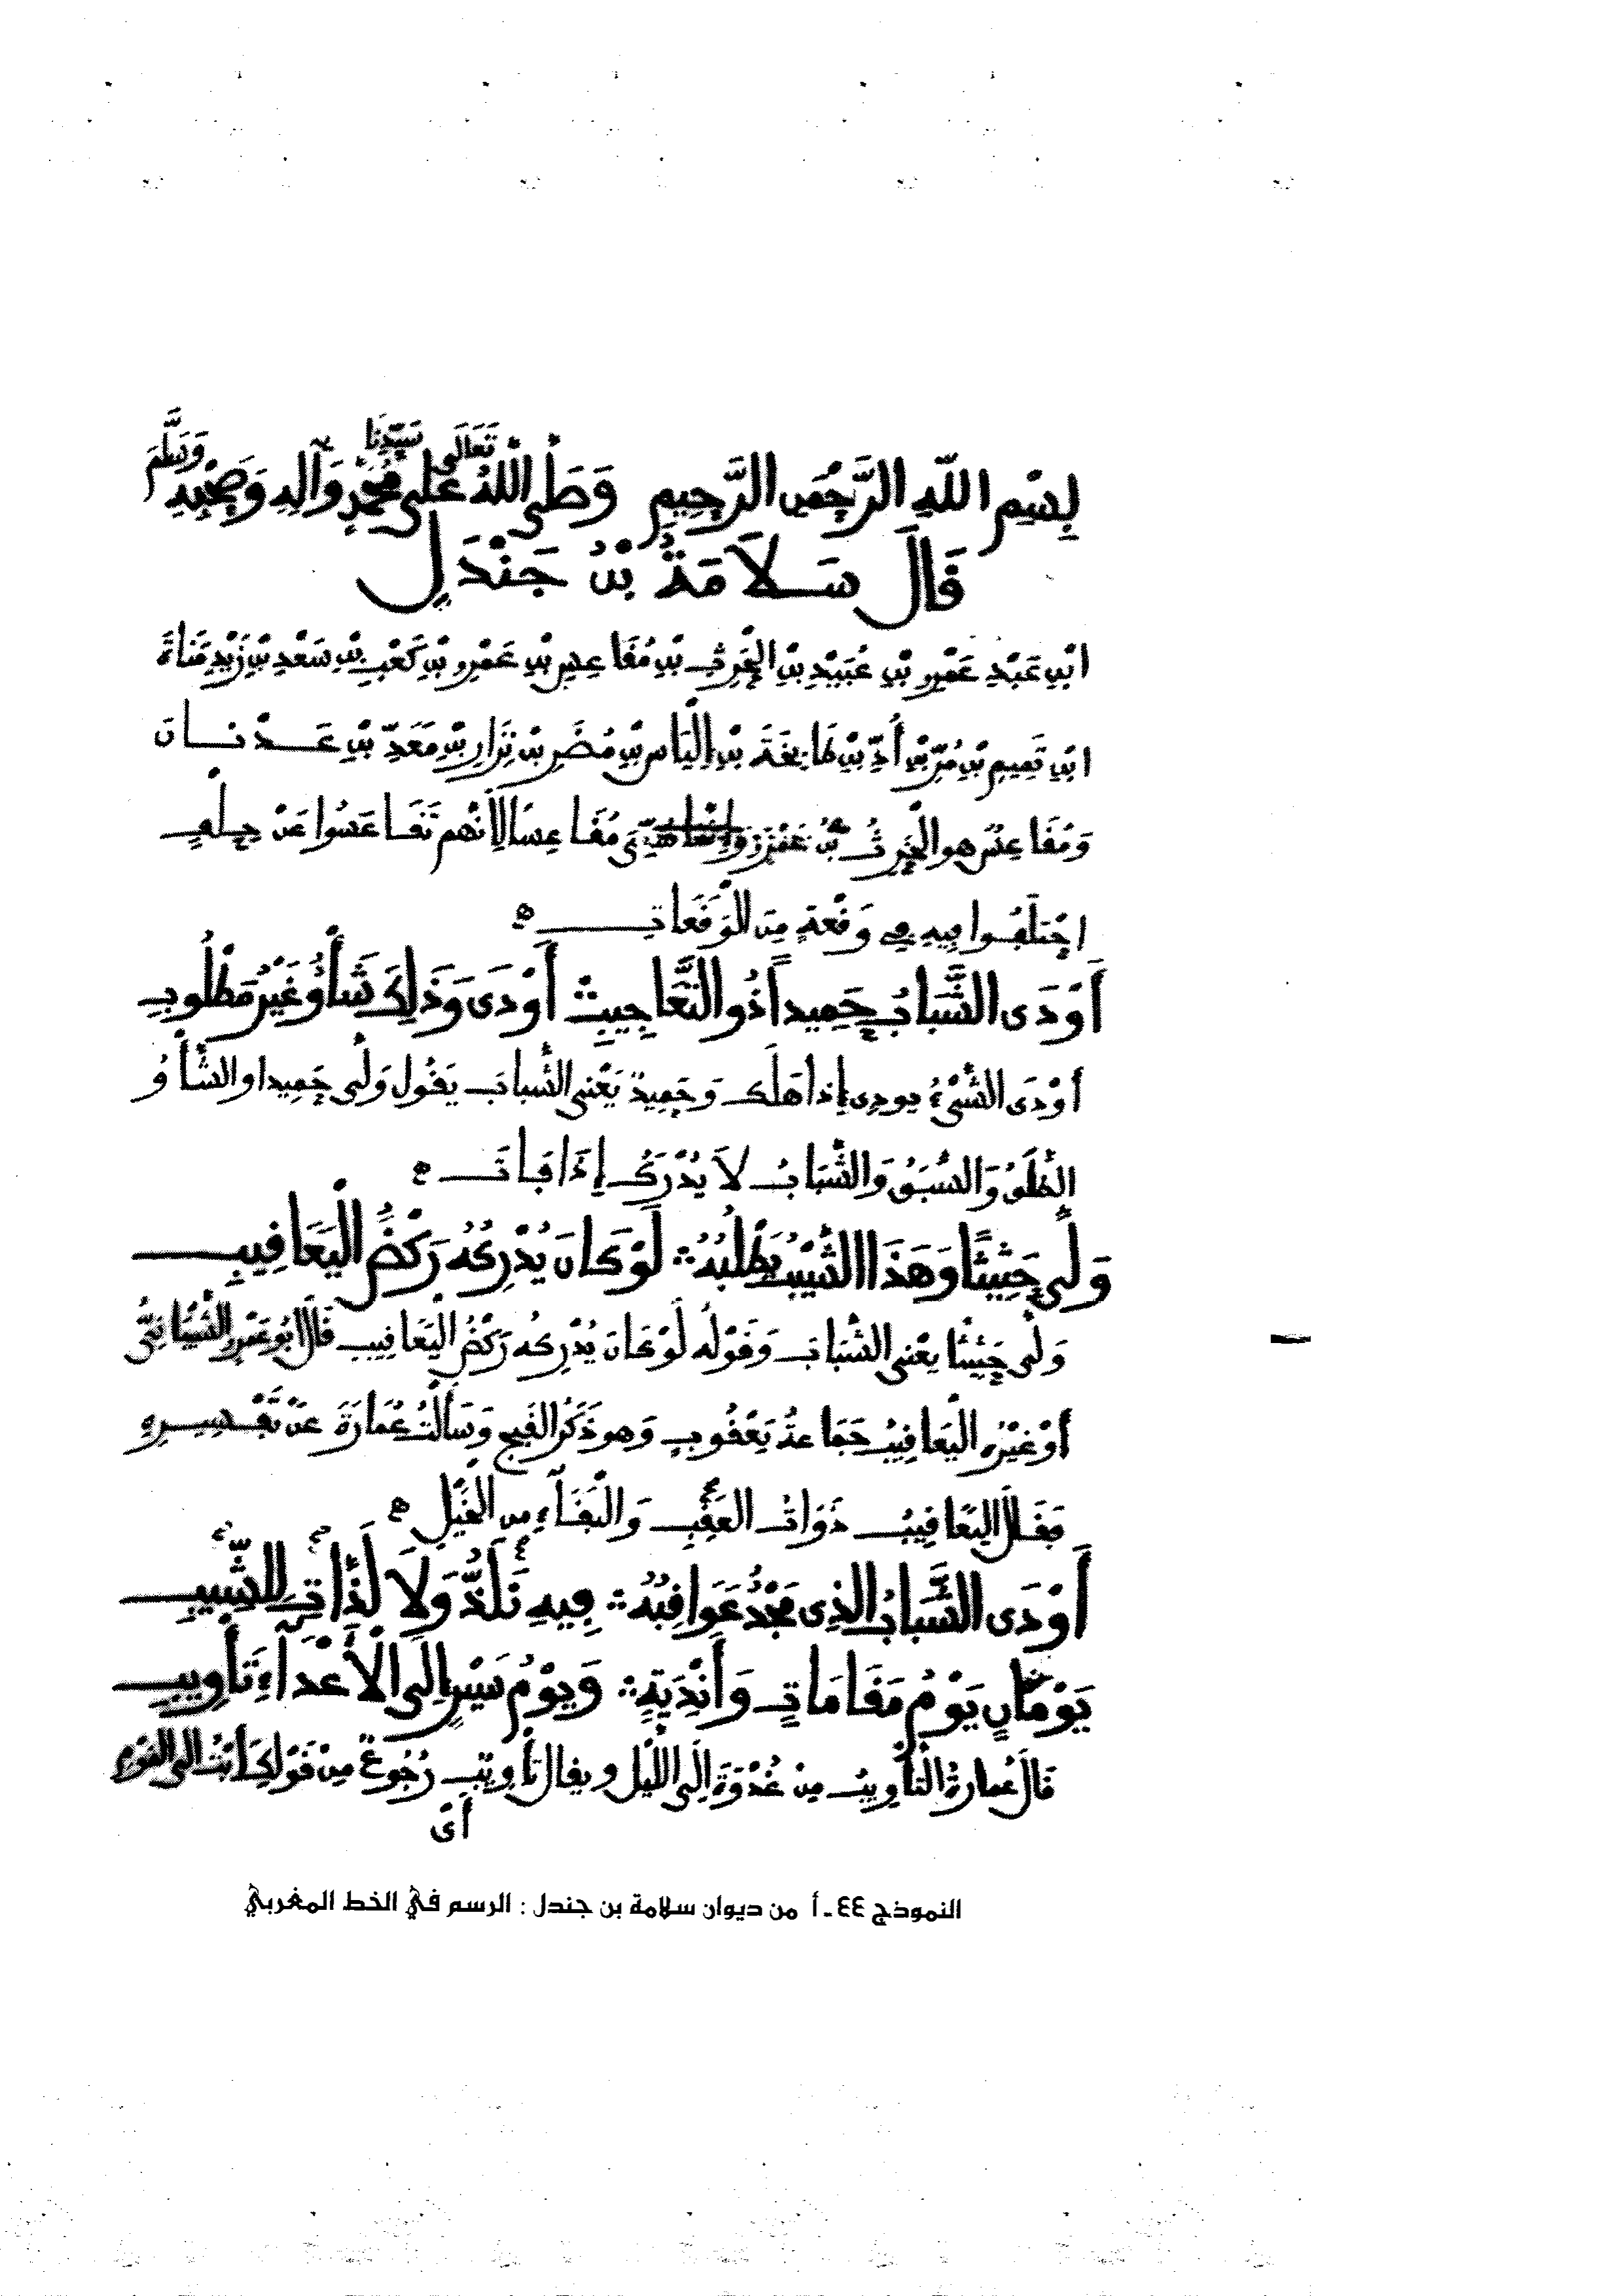 بِسْمِ اللَّهِ الرَّحْمَنِ الرَّحِيمِ وَصَلَّى اللَّهُ تَعَالَى عَلَى سَيِّدِنَا مُحَمَّدٍ وَآلِهِ وَصَحْبِهِ وَسَلَّمَ
قَالَ سَلاَمَةُ بْنُ جَنْدَلٍ
ابْنِ عَبْدِ عَمْرِو بْنِ عُبَيْدِ بْنِ الْحَرِثِ بْنِ مُقَاعِسِ بْنِ عَمْرِو بْنِ كَعْبِ بْنِ سَعْدِ بْنِ زَيْدِ مَنَاةَ
ابْنِ تَمِيمِ بْنِ مُرِّ بْنِ أُدِّ بْنِ طَابِخَةَ بْنِ الْيَاسِ بْنِ مُضَرِ بْنِ نِزَارِ بْنِ مَعَدِّ بْنِ عَدْنَان
وَمُقَاعِسٌ هو الْحَرِثُ بْنُ عَمْرٍو وَإنَّمَا سُمِّيَ مُقَاعِسًا لِأَنَّهُم تَقَاعَسُوا عَنْ حِلْفٍ
اخْتَلَفُوا فِيهِ فِي وَقْعَةٍ مِنَ الْوَقَعَاتِ ه
أَوْدَى الشَّبَابُ حَمِيداً ذُو التَّعَاجِيبِ أَوْدَى وَذَلِكَ شَأْوٌ غَيْرُ مَطْلُوبِ
أَوْدَى الشَّيْءُ يودِى إِذا هَلَكَ وَحَمِيدٌ يَعْنِى الشَّبابَ يَقُول وَلَّى حَمِيدا والشَّأْوُ
الطَّلَقُ وَالسَّبْقُ وَالشَّبَابُ لاَ يُدْرَكُ إِذَا فَاتَ ه
وَلَّى حَثِيثًا وَهَذَا الشَّيْبُ يَطْلُبُهُ لَوْ كَانَ يُدْرِكُهُ رَكْضُ الْيَعَاقِيبِ
وَلَّى حَثِيثًا يَعْنِى الشَّبَابَ وَقَوْلُه لَوْ كَانَ يُدْرِكُه رَكْضُ الْيَعَاقِيبِ قَالَ أبُو عَمْرٍو الشَّيْبَانِيُّ
أَوْ غَيْرُه الْيَعَاقِيبُ جَمَاعَةُ يَعْقُوبٍ وَهو ذَكَرُ القَبَجِ وَسَأَلْتُ عُمَارَةَ عَنْ تَفْسِيرِهِ
فَقَالَ الْيَعَاقِيبُ ذَوَاتُ العَقْبِ وَالْبَقَآءِ مِن الْخَيْلِ ه
أَوْدَى الشَّبَابُ الذِى مَجْدٌ عَوَاقِبُهُ فِيهِ نَلَذُّ وَلاَ لَذَّاتِ لِلشِّيبِ
يَوْمَانِ يَوْمُ مَقَامَاتٍ وَأَنْدِيَةٍ وَيَوْمُ سَيْرٍ إِلَى الْأَعْدَآءِ تَأْوِيبِ
قَالَ عُمارةُ التَّأْوِيبُ مِنْ غُدْوَةَ إِلَى اللَّيْل ويقال تَأْوِيبٌ رُجُوعٌ مِنْ قَوْلِكَ أُبْتُ إلى القَوْمِ
أَىْ
النموذج ٤٤ ـ أ من ديوان سلامة بن جندل : الرسم في الخط المغربي